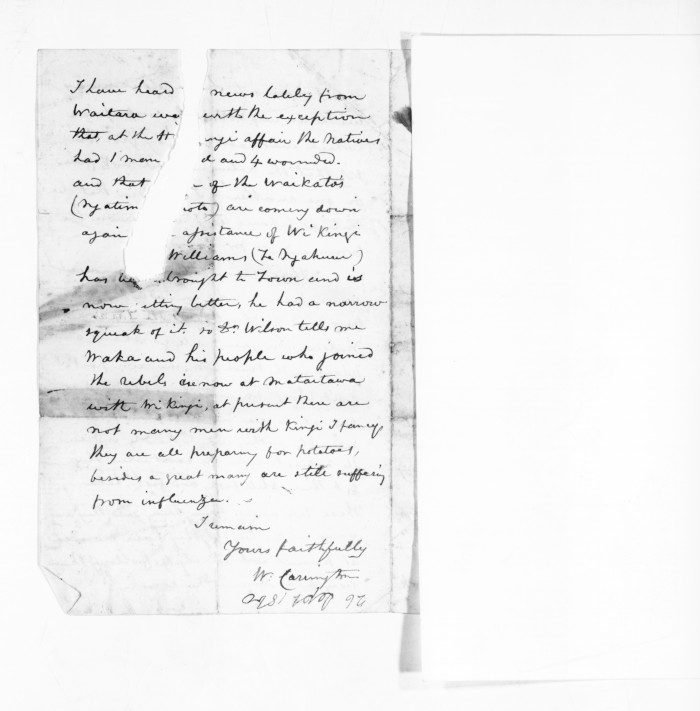 I have heard news lately from
Waitara with the exception
that, at the ngi affair the Natives
had 1 man d and 4 wounded.
and that of the Waikatos
(Ngatim iots) are coming down
again assistance of Wi Kingi
Williams (Te Ngahuru)
has be brought to Town and is
now etting better, he had a narrow
squeak of it. so Dr. Wilson tells me
Waka and his people who joined
the rebels are now at Mataitawa
with Wi Kingi, at present there are
not many men with Kingi I fancy
they are all preparing for potatoes,
besides a great many are still suffering
from influenza.
I remain
Yours faithfully
W. Carington